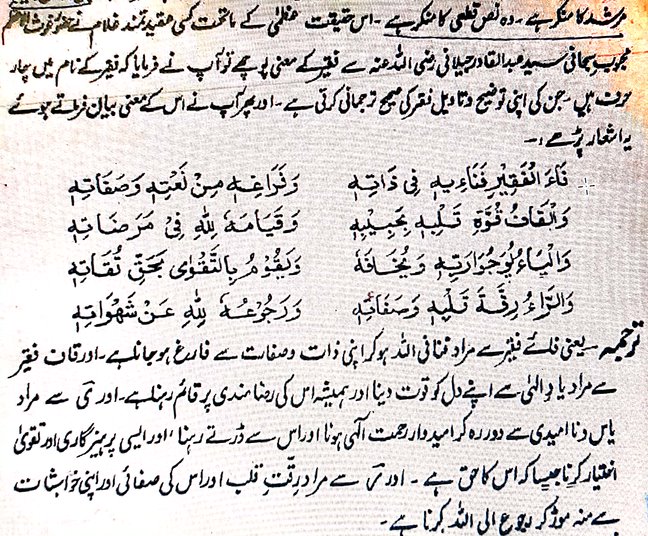 مرشد کا منکر ہے ۔ وہ نص قطعی کا منکر ہے ۔ اس حقیقت عظمیٰ کے ماتحت کسی عقیدتمند غلام نے حضور غوث الاعظم
محبوب سبحانی سید عبدالقادر جیلانی رضی اللہ عنہ سے فقیر کے معنی پوچھے تو آپ نے فرمایا کہ فقیر کے نام میں چار
حرف ہیں ۔ جن کی اپنی توضیح و تاویل فقر کی صحیح ترجمانی کرتی ہے ۔ اور پھر آپ نے اس کے معنی بیان فرماتے ہوئے
یہ اشعار پڑھے :۔
فَاءُ الْفَقِيْرِ فَنَاءِيهٖ فِىْ ذَاتِهٖ وَفَرَاغِهٖ مِنْ نَعْتِهٖ وَصَفَاتِهٖ
وَالْقَافُ قُوَّةِ قَلْبِهٖ بِحَبِيْبِهٖ وَقِيَامُهٗ لِلّٰهِ فِىْ مَرَضَاتِهٖ
وَالْيَاءُ يَرْجُوْا رَبَّهٗ وَيُخَافُهٗ وَيَقُوْمُ بِالتَّقْوٰى بِحَقِّ تُقَاتِهٖ
وَالرَّاءُ رِقَّةُ قَلْبِهٖ وَصَفَائِهٖ وَرَجُوْعُهٗ لِلّٰهِ عَنْ شَهْوَاتِهٖ
ترجمہ ۔ یعنی فائے فقیر سے مراد فنا فی اللہ ہو کر اپنی ذات و صفات سے فارغ ہو جانا ہے ۔ اور قاف فقیر
سے مراد یاد الٰہی سے اپنے دل کو قوت دینا اور ہمیشہ اس کی رضا مندی پر قائم رہنا ہے ۔ اور ی سے مراد
یاس و نا امیدی سے دور رہ کر امیدوار رحمت الٰہی ہونا اور اس سے ڈرتے رہنا ' اور ایسی پرہیزگاری اور تقویٰ
اختیار کرنا جیسا کہ اس کا حق ہے ۔ اور ر سے مراد رقّتِ قلب اور اس کی صفائی اور اپنی خواہشات
سے منہ موڑ کر رجوع الی اللہ کرنا ہے ۔